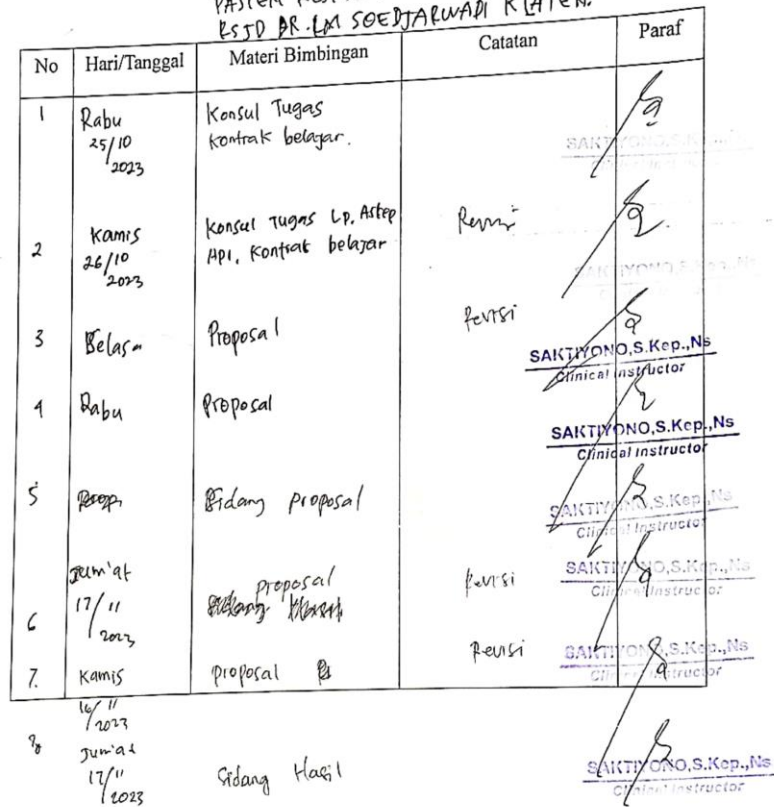 RSJD DR.RM SOEDJARWADI KLATEN.
No Hari/Tanggal Materi Bimbingan Catatan Paraf
1 Rabu Konsul Tugas
25/10 Kontrak belajar.
2023
SAKTIYONO,S.Kep.,Ns
Clinical Instructor
Konsul Tugas Lp, Askep Revisi
2 Kamis API, Kontrak belajar
26/10
2023
SAKTIYONO,S.Kep.,Ns
3 Selasa Proposal Revisi
SAKTIYONO,S.Kep.,Ns
Clinical Instructor
4 Rabu Proposal
SAKTIYONO,S.Kep.,Ns
Clinical Instructor
5 Sidang proposal
SAKTIYONO,S.Kep.,Ns
Clinical Instructor
Jum'at proposal Revisi
SAKTIYONO,S.Kep.,Ns
Clinical Instructor
6 17/11
2023
7. Kamis proposal Revisi
SAKTIYONO,S.Kep.,Ns
Clinical Instructor
16/11
2023
8 Jum'at
17/11 Sidang Hasil
2023
SAKTIYONO,S.Kep.,Ns
Clinical Instructor